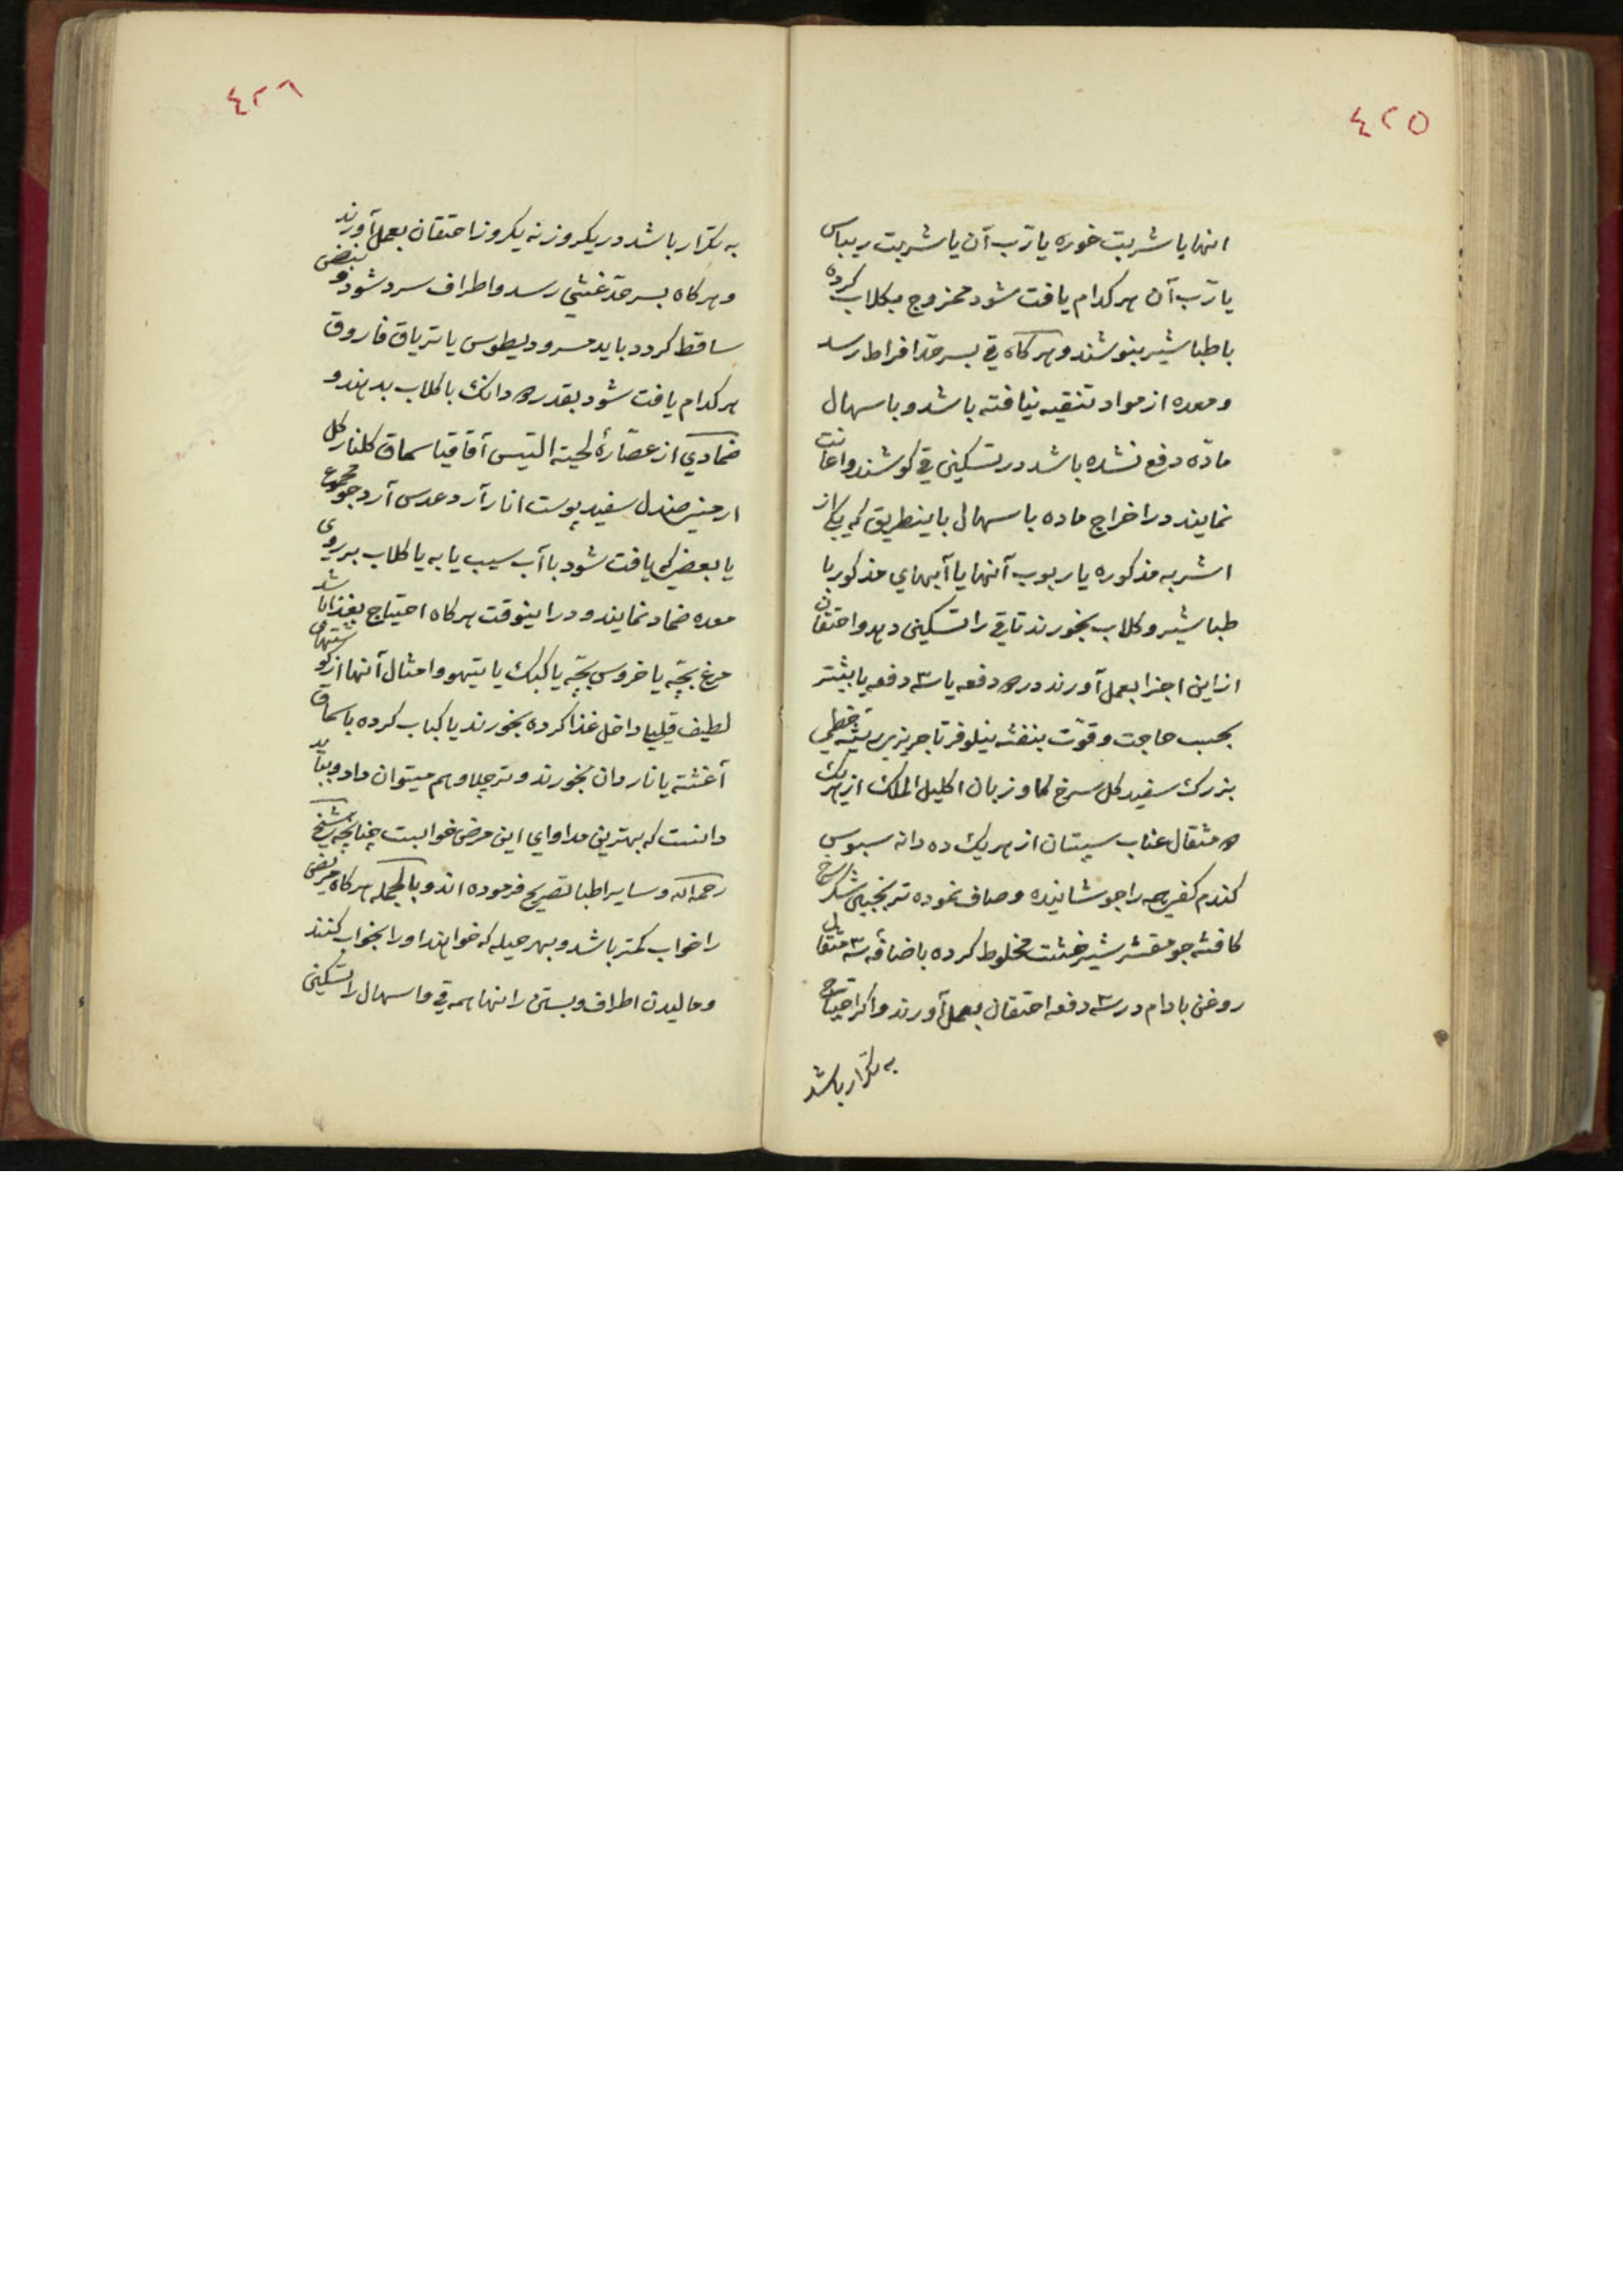 ٤٢٥
انها یا شربت غوره یا رّب آن یا شربت ریباس
یا رّب آن هر کدام یافت شود ممزوج بکلاب کرده
با طباشیر بنوشند و هرکاه قی بسر حد افراط رسد
و معده از مواد تنقیه نیافته باشد و باسهال
مادّه دفع نشده باشد در تسکین قی کوشند و اعانت
نمایند در اخراج ماده باسهال باینطریق که یکی از
اشربه مذکوره یا ربوب آنها یا آبهای مذکور با
طباشیر و کلاب بخورند تا قی را تسکین دهد و احتقان
از این اجزا بعمل آورند در ۲ دفعه یا ۳ دفعه یا بیشتر
بحسب حاجت و قوّت بنفشه نیلوفر تاجریزی ریشه خطمی
بزرک سفید کل سرخ کاو زبان اکلیل الملک از هریک
۲ مثقال عناب سپستان از هر یک ده دانه سبوس
کندم کفی همه را جوشانیده و صاف نموده ترنجبین شکر سرخ
کافشه جو مقشر شیر خشت مخلوط کرده باضافه ۳ مثقال
روغن بادام در ۳ دفعه احتقان بعمل آورند و اکر احتیاج
به تکرار باشد
٤٢٦
به تکرار باشد در یکروز نه یکروز احتقان بعمل آورند
و هرکاه بسر حدّ غشی رسد و اطراف سرد شود و نبض
ساقط کردد باید مسرودیطوس یا تریاق فاروق
هر کدام یافت شود بقدر ۲ دانک با کلاب بدهند و
ضمادی از عصّارهٔ لحیته التیس آقاقیا سماق کلنار کل
ارمنی صندل سفید پوست انار آرد عدس آرد جو مجموع
یا بعضی که یافت شود با آب سیب یا به یا کلاب بر روی
معده ضماد نمایند و در اینوقت هرکاه احتیاج بغذا باشد
مرغ بچّه یا خروس بچّه یا کبک یا تیهو و امثال آنها از کوشتهای
لطیف قلیلی داخل غذا کرده بخورند یا کباب کرده با سماق
آغشته یا ناردان بخورند و تر چلاو هم میتوان داد و باید
دانست که بهترین مداوای این مرض خوابست چنانچه شیخ
رحمه الله و سایر اطبا تصریح فرموده اند و بالجمله هرکاه مریض
را خواب کمتر باشد و بهر حیله که خواهند او را بخواب کنند
و مالیدن اطراف و بستن رانها همه قی و اسهال را تسکین